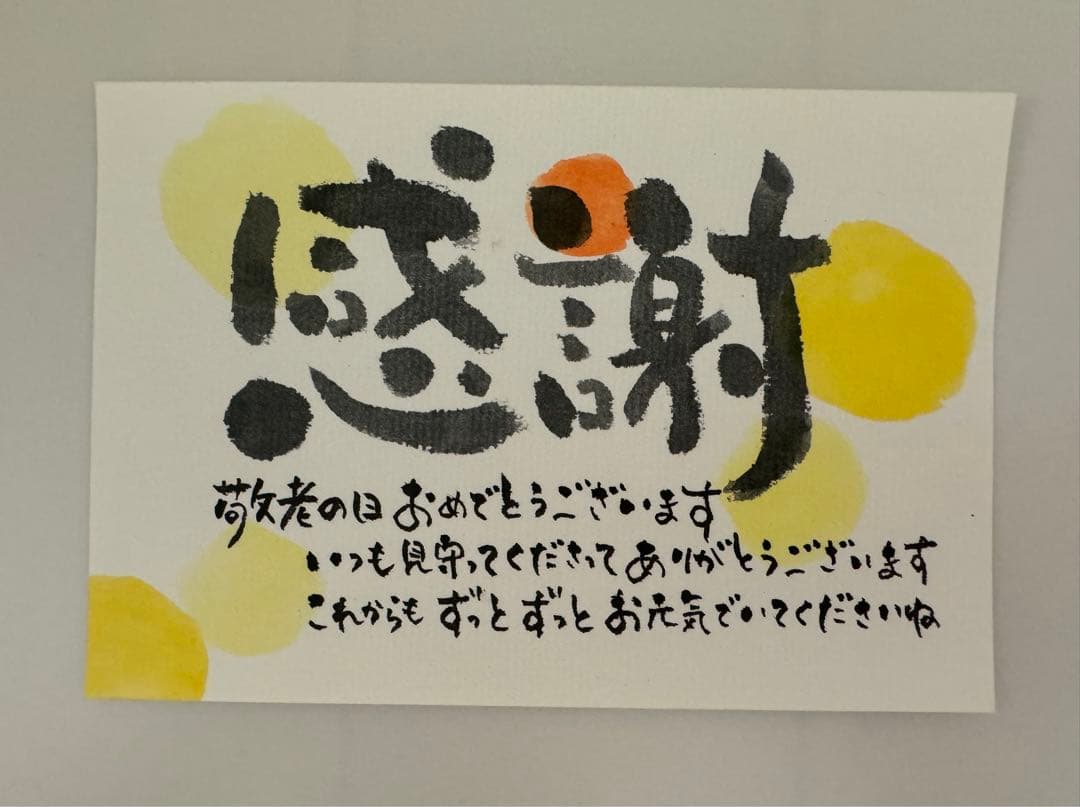 感謝
敬老の日 おめでとうございます
いつも見守ってくださって ありがとうございます
これからも ずっとずっと お元気でいてくださいね